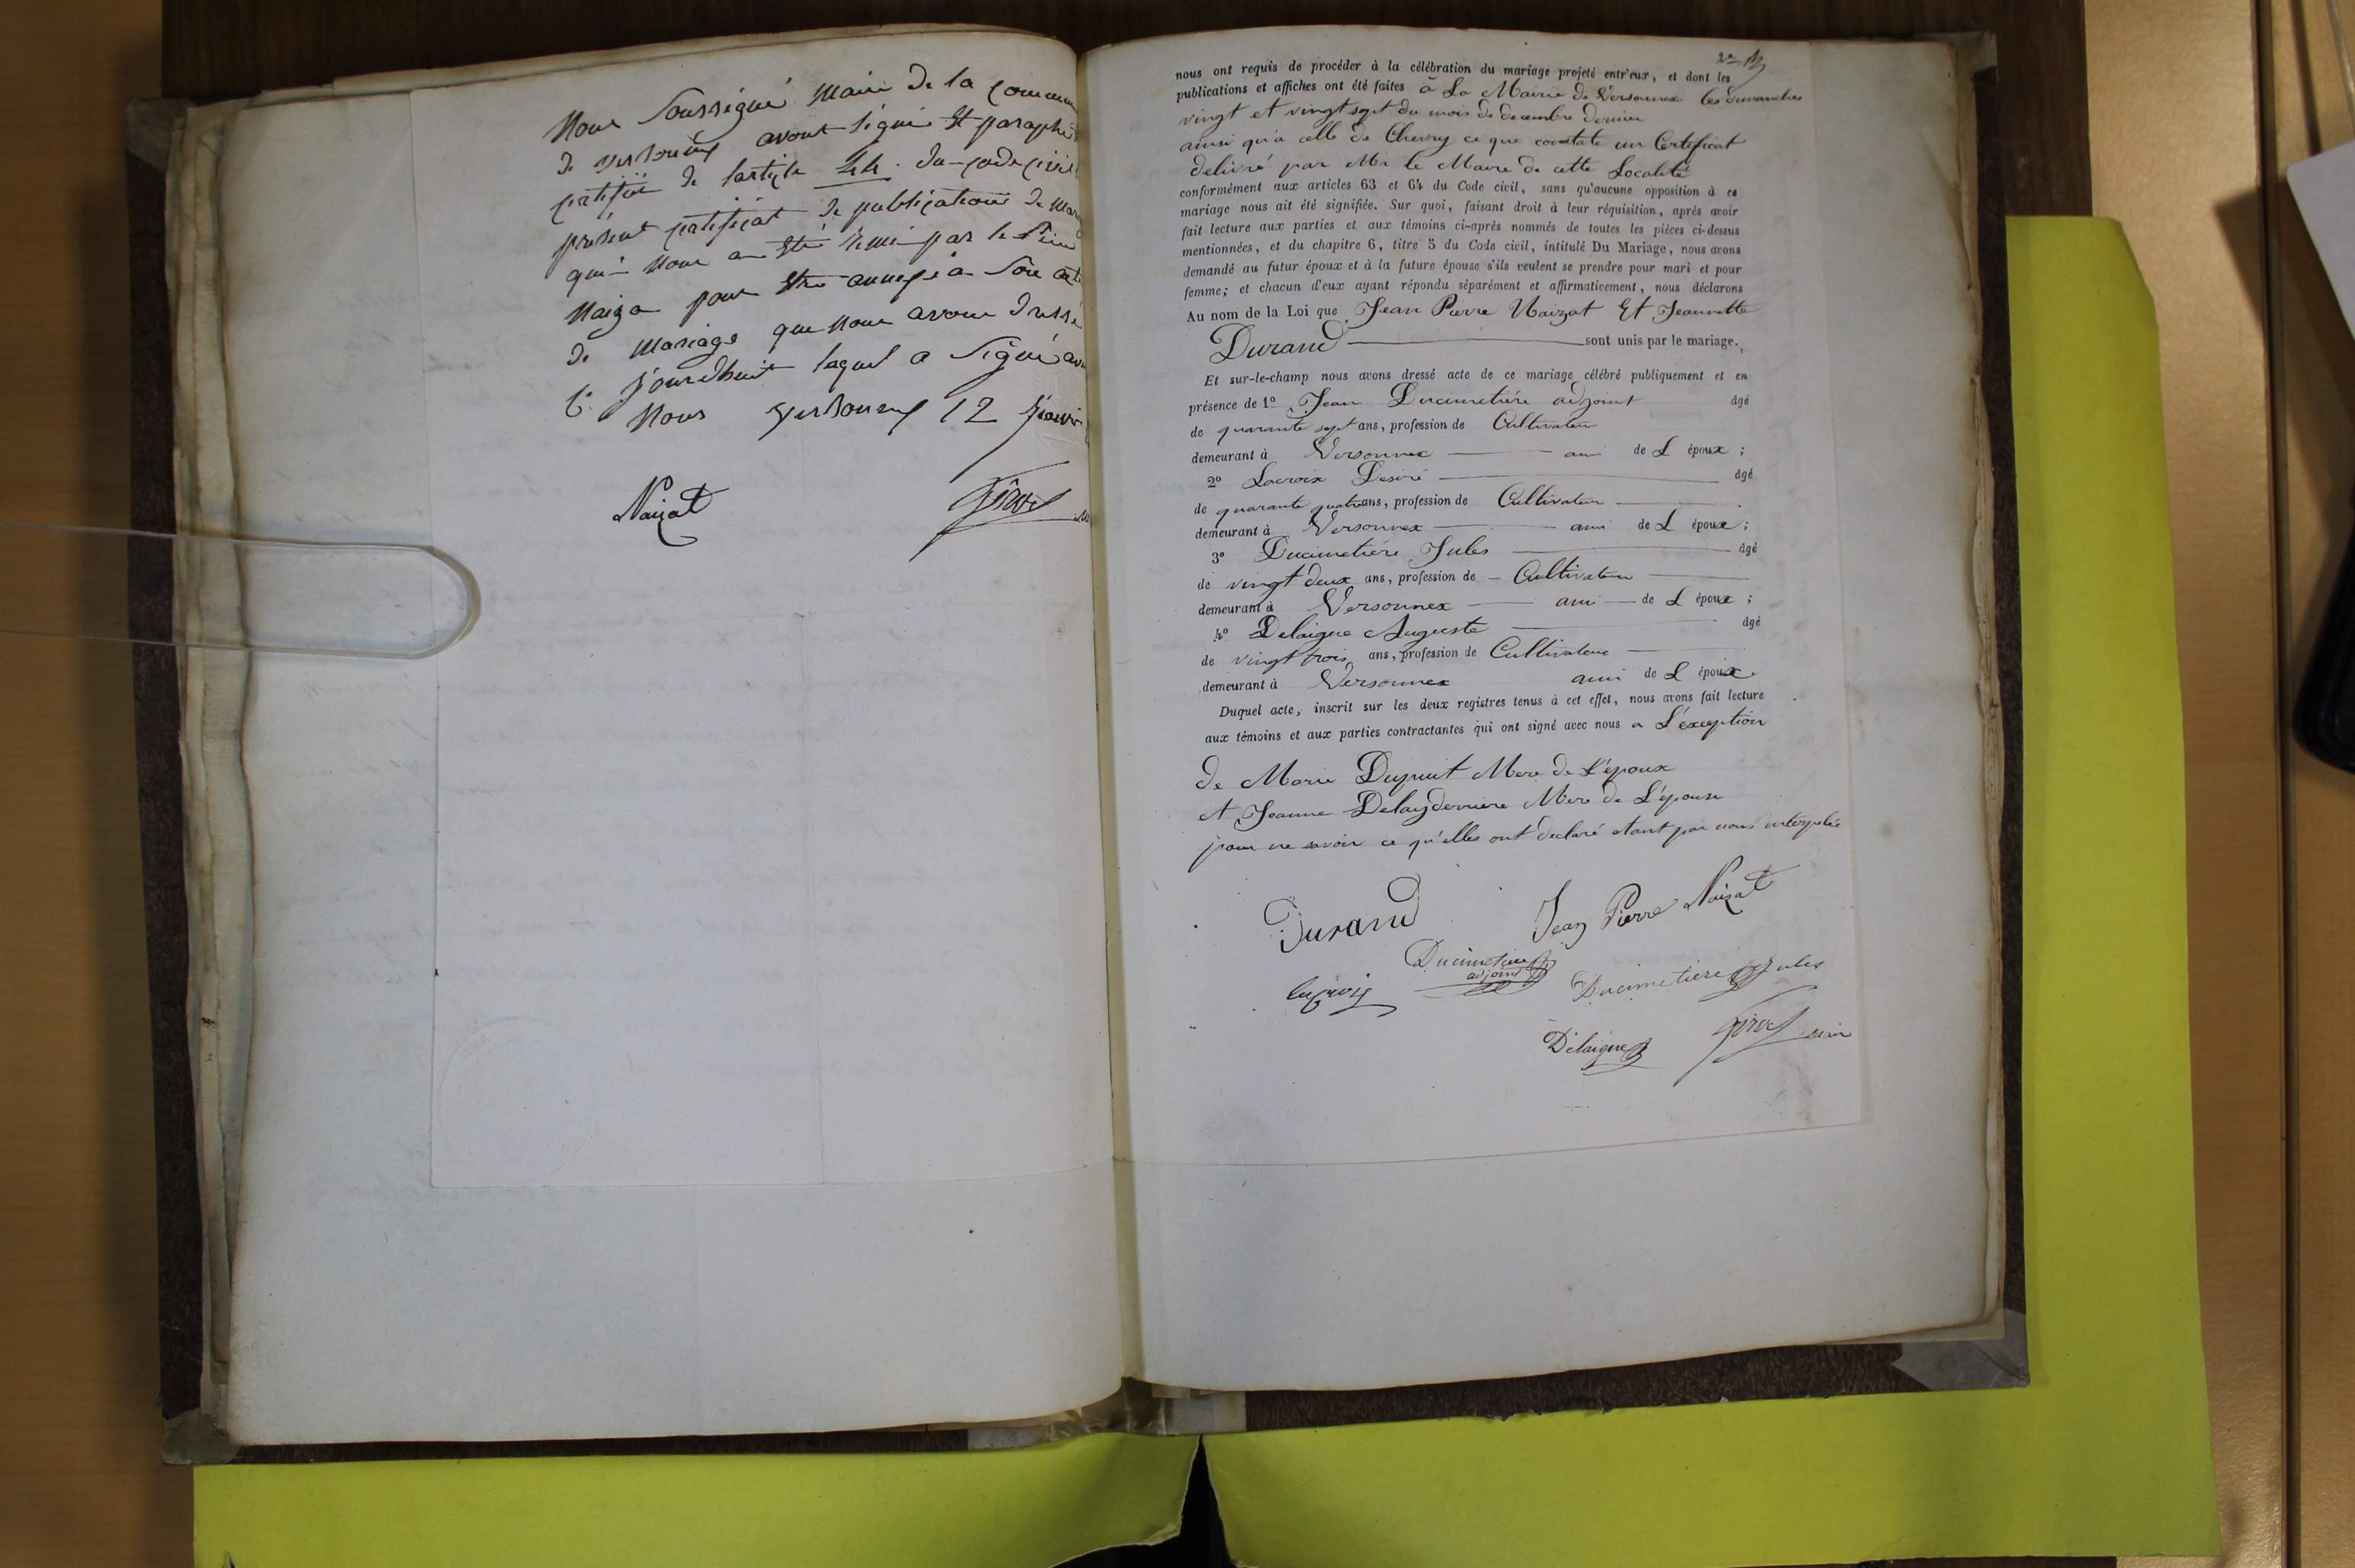 Nous Soussigné Maire de la Commune
de Versonnex avons signé Et paraphé
certifié de l'article 44. du code civil
présent certificat de publications de Mari
qui Nous a Été remi par le Sieur
Naiza pour Etre annexé a Son acte
de Mariage que Nous avons dressé
C. jourdhuit lequel a Signé avec
Nous Versonnex 12 Janvi
Naizat Girod
nous ont requis de procéder à la célébration du mariage projeté entr'eux, et dont les
publications et affiches ont été faites à La Mairie de Versonnex les dimanches
vingt et vingt sept du mois de decembre dernier
ainsi qu'a celle de Chevry ce que constate un Certificat
delivré par Mr le Maire de cette Localité
conformément aux articles 63 et 64 du Code civil, sans qu'aucune opposition à ce
mariage nous ait été signifiée. Sur quoi, faisant droit à leur réquisition, après avoir
fait lecture aux parties et aux témoins ci-après nommés de toutes les pièces ci-dessus
mentionnées, et du chapitre 6, titre 5 du Code civil, intitulé Du Mariage, nous avons
demandé au futur époux et à la future épouse s'ils veulent se prendre pour mari et pour
femme; et chacun d'eux ayant répondu séparément et affirmativement, nous déclarons
Au nom de la Loi que Jean Pierre Naizat Et Jeannette
Durand sont unis par le mariage.
Et sur-le-champ nous avons dressé acte de ce mariage célébré publiquement et en
présence de 1º Jean Ducimetiére adjoint âgé
de quarante sept ans, profession de Cultivateur
demeurant à Versonnex ami de L époux ;
2º Lacroix Desiré âgé
de quarante quatre ans, profession de Cultivateur
demeurant à Versonnex ami de L époux ;
3º Ducimetiére Jules âgé
de vingt deux ans, profession de Cultivateur
demeurant à Versonnex ami de L époux ;
4º Delaigue Auguste âgé
de vingt trois ans, profession de Cultivateur
demeurant à Versonnex ami de L époux.
Duquel acte, inscrit sur les deux registres tenus à cet effet, nous avons fait lecture
aux témoins et aux parties contractantes qui ont signé avec nous a L'exception
de Marie Dupuit Mere de L'époux
et Jeanne Delayderniere Mere de L'épouse
pour ne savoir ce qu'elles ont declaré etant par nous interpelée
Durand Jean Pierre Naizat
Ducimetiere
adjoint
lacroix Ducimetiere Jules
Delaigue Girod maire